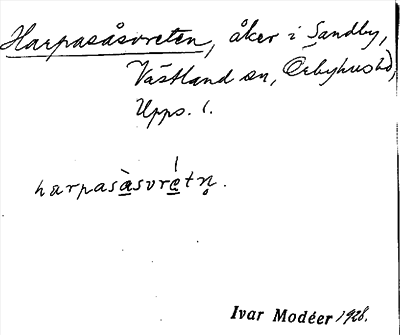 Harpasåsvreten, åker i Sandby,
Västland sn, Örbyhus hd,
Upps. l.
harpasàsvrét n̥.
Ivar Modéer 1928.